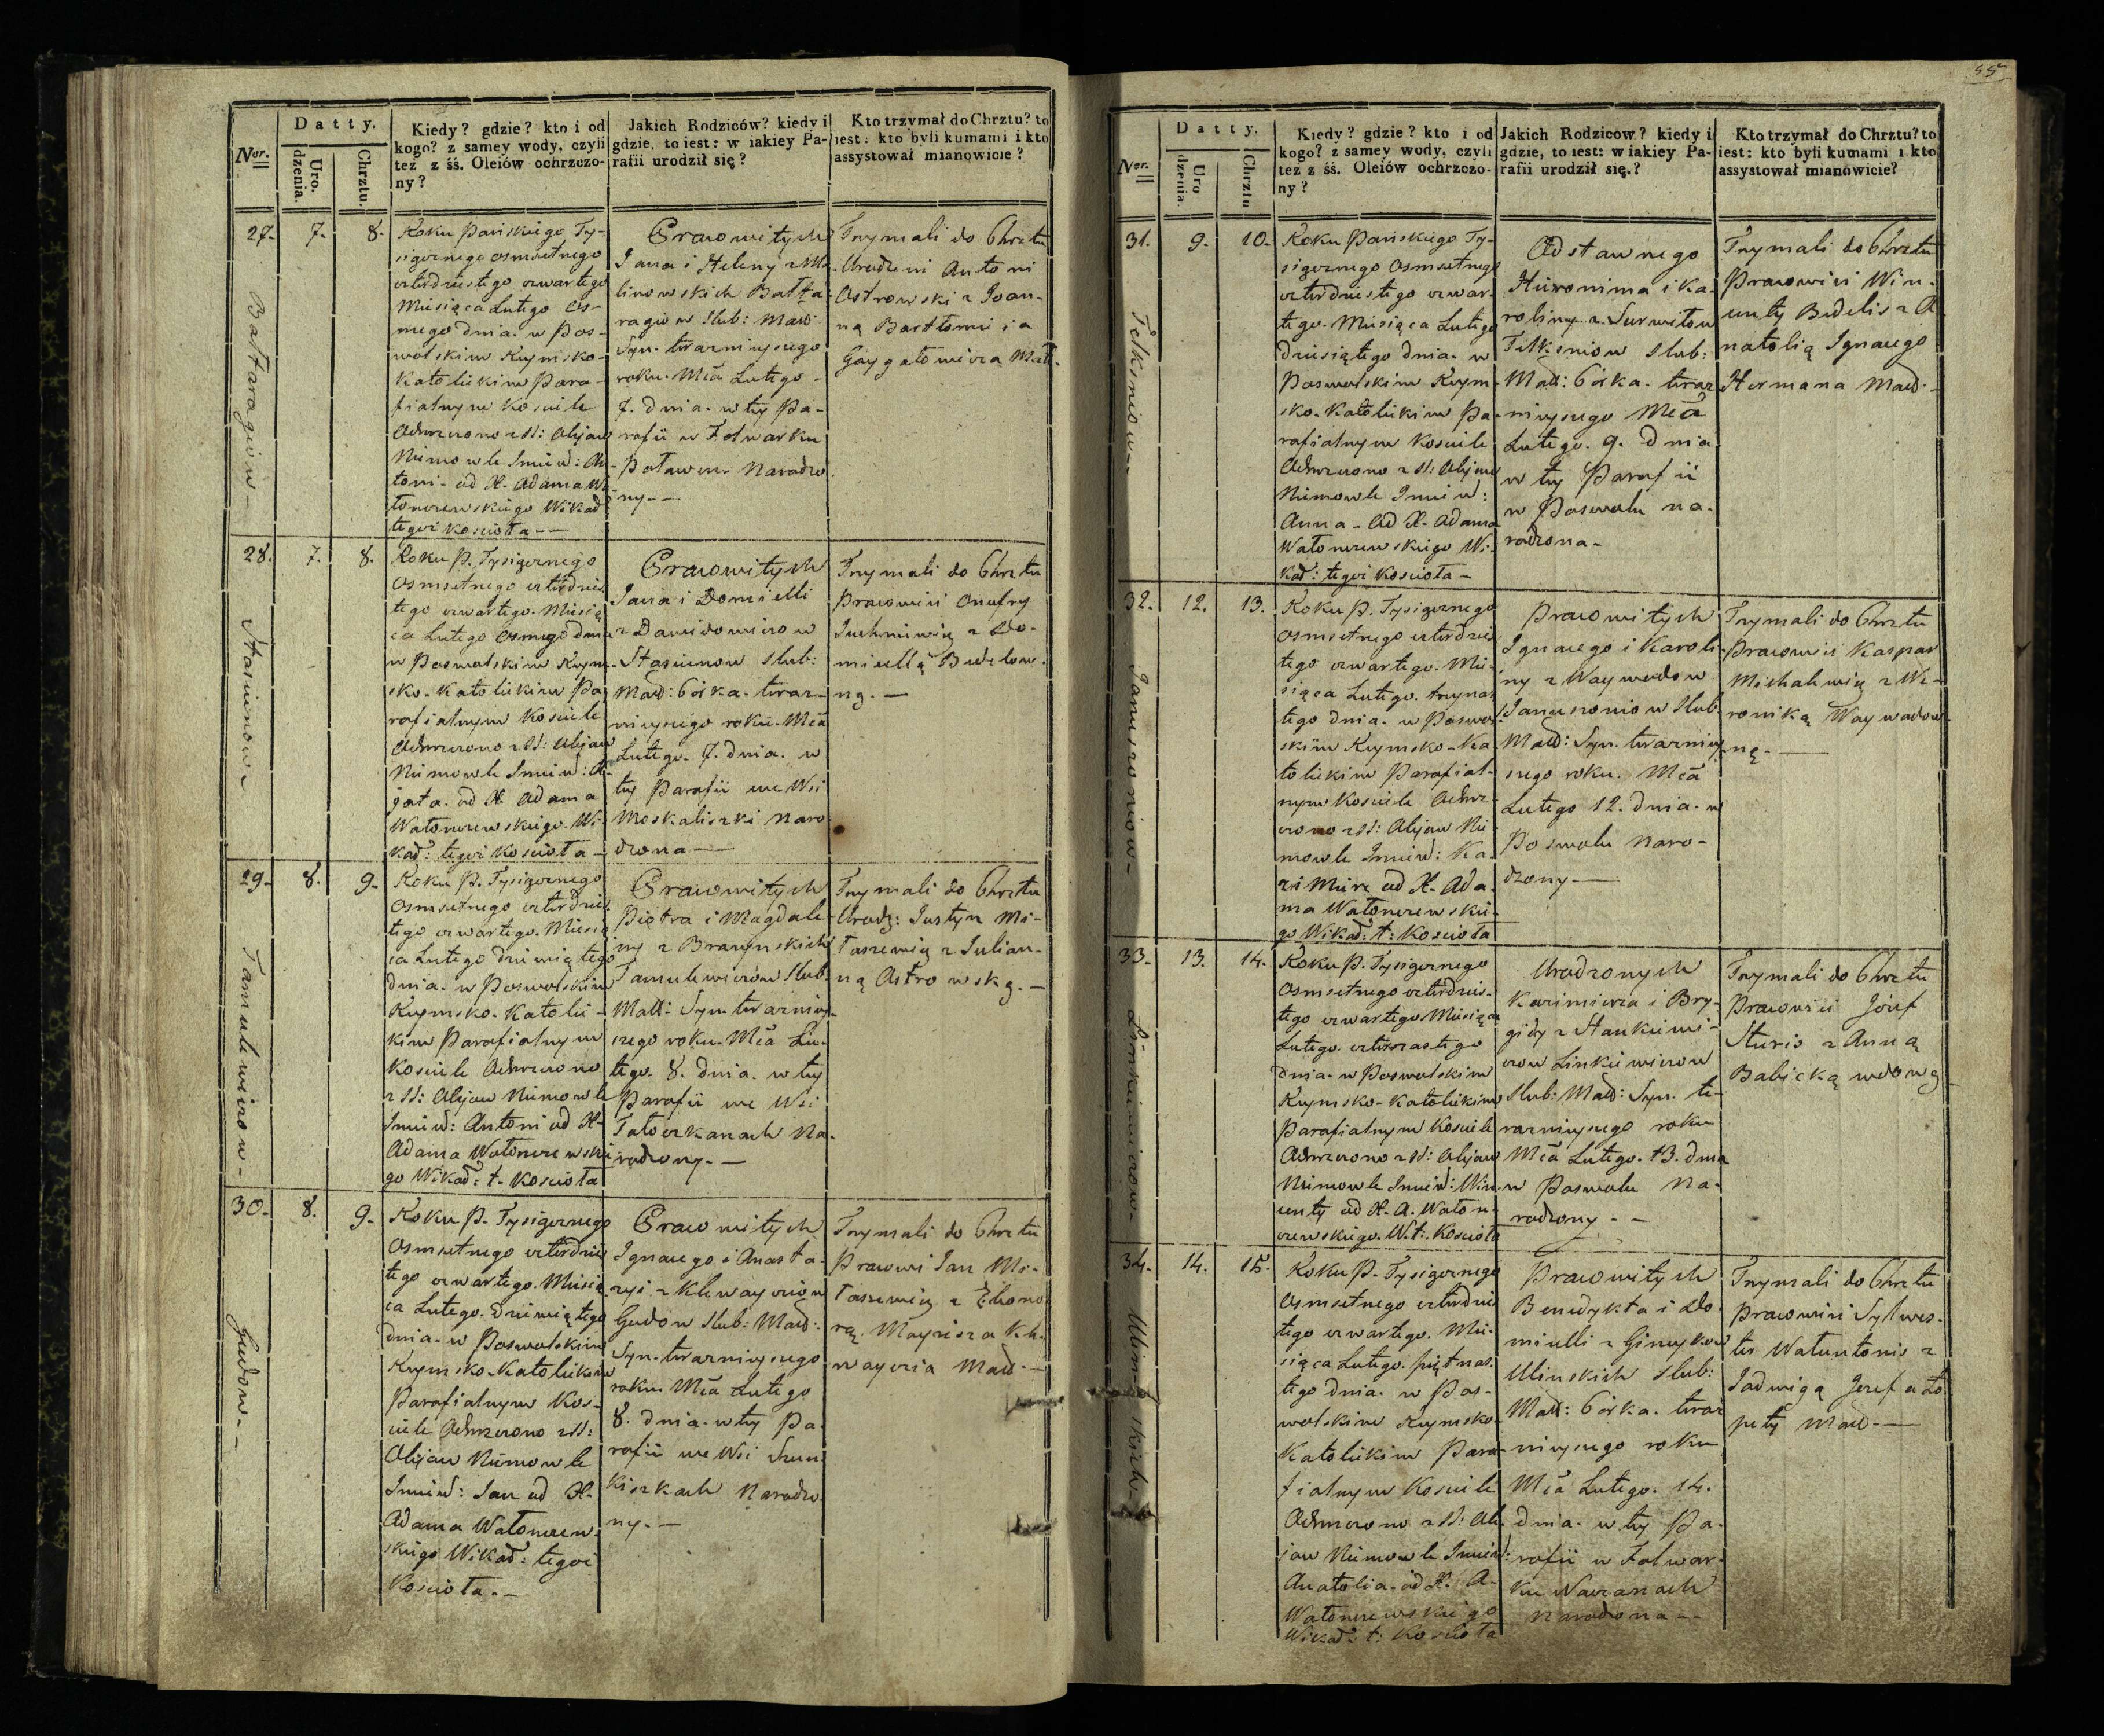 Nor.
Datty.
Uro. dzenia.
Chrztu.
Kiedy? gdzie? kto i od
kogo? z samey wody, czyli
też z śś. Oleiów ochrzczo-
ny?
Jakich Rodziców? kiedy i
gdzie, to iest: w iakiey Pa-
rafii urodził się?
Kto trzymał do Chrztu? to
iest: kto byli kumami i kto
assystował mianowicie?
27.
Battaragiow
7.
8.
Roku Pańskiego Ty-
siącznego osmsetnego
czterdziestego czwartego
Miesiąca Lutego Os-
mego dnia. w Pos-
wolskim Rzymsko-
Katolickim Para-
fialnym Kościele
Ochrzczono z SS: Olejow
Niemowle Imien: An-
toni. od X. Adama Wa-
tonczewskiego Wikar:
tegoż Kościoła
Prawowitych
Jana i Heleny z Ma-
linowskich Batta-
ragiow Slub: Małż:
Syn. teraznieyszego
roku. Mca Lutego
7. dnia. w tey Pa-
rafii w Folwarku
Narodzo-
ny.
Trzymali do Chrztu
Urodzeni Antoni
Ostrowski z Joan-
ną Bartłomieia
Gaygałowicza Małż.
28.
Stasiunow
7.
8.
Roku P. Tysiącznego
Osmsetnego czterdzies
tego czwartego. Miesią
ca Lutego Osmego dnia
w Poswolskim Rzym-
sko-Katolickim Pa
rafialnym Kościele
Ochrzczono z SS: Olejow
Niemowle Imien: A-
gata. od X. Adama
Watonczewskiego. Wi-
kar: tegoż Kościoła
Prawowitych
Jana i Domicelli
z Dawidowiczow
Stasiunow Slub:
Małż: Córka. teraz-
nieyszego roku. Mca
Lutego. 7. dnia. w
tey Parafii we Wsi
Moskaliszki Naro-
dzona
Trzymali do Chrztu
Prawowici Onufry
Juchniewicz z Do-
micellą Budelow-
ną.
29.
Tamulewiczow
8.
9.
Roku P. Tysiącznego
Osmsetnego czterdzies
tego czwartego. Miesią
ca Lutego dziewiątego
dnia. w Poswolskim
Rzymsko-Katolic-
kim Parafialnym
Kościele Ochrzczono
z SS: Olejow Niemowle
Imien: Antoni od X.
Adama Watonczewskie
go Wikar: t. Kościoła
Prawowitych
Piotra i Magdale-
ny z
Tamulewiczow Slub.
Małż: Syn. terazniey-
szego roku. Mca Lu-
tego. 8. dnia. w tey
Parafii we Wsi
Na-
rodzony.
Trzymali do Chrztu
Urodz: Justyn Mi-
taszewicz z Julian-
ną Ostrowską.
30.
Gudow
8.
9.
Roku P. Tysiącznego
Osmsetnego czterdzies
tego czwartego. Miesią
ca Lutego. Dziewiątego
dnia. w Poswolskim
Rzymsko-Katolickim
Parafialnym Kos-
ciele Ochrzczono z SS:
Olejow Niemowle
Imien: Jan od X.
Adama Watonczew-
skiego Wikar: tegoż
Kościoła.
Prawowitych
Ignacego i Anasta-
zyi z Klewayciow
Gudow Slub: Małż:
Syn. teraznieyszego
roku Mca Lutego
8. dnia. w tey Pa-
rafii we Wsi
Narodzo-
ny.
Trzymali do Chrztu
Prawowi Jan Mi-
taszewicz z
Kle-
waycia Małż.
55
Nor.
Datty.
Uro dzenia.
Chrztu
Kiedy? gdzie? kto i od
kogo? z samey wody, czyli
też z śś. Oleiów ochrzczo-
ny?
Jakich Rodziców? kiedy i
gdzie, to iest: w iakiey Pa-
rafii urodził się?
Kto trzymał do Chrztu? to
iest: kto byli kumami i kto
assystował mianowicie?
31.
9.
10.
Roku Pańskiego Ty-
siącznego Osmsetnego
czterdziestego czwar-
tego. Miesiąca Lutego
dziesiątego dnia. w
Poswolskim Rzym-
sko-Katolickim Pa-
rafialnym Kościele
Ochrzczono z SS: Olejow
Niemowle Imien:
Anna. Od X. Adama
Watonczewskiego Wi-
kar: tegoż Kościoła
Odstawnego
Hieronima i Ka-
roliny z Surwiłow
Slub:
Małż: Córka. teraz-
nieyszego Mca
Lutego. 9. dnia
w tey Parafii
w Poswolu na-
rodzona.
Trzymali do Chrztu
Prawowici Win-
centy Budelis z A-
natolią Ignacego
Hermana Małż.
32.
Januszoniow
12.
13.
Roku P. Tysiącznego
Osmsetnego czterdzies
tego czwartego. Mie-
siąca Lutego. trzynas-
tego dnia. w Poswol-
skim Rzymsko-Ka-
tolickim Parafial-
nym Kościele Ochrz-
czono z SS: Olejow Nie-
mowle Imien: Ka-
zimierz od X. Ada-
ma Watonczewskie-
go Wikar: t: Kościoła
Prawowitych
Ignacego i Karoli-
ny z Waywodow
Januszoniow Slub.
Małż: Syn. terazniey-
szego roku. Mca
Lutego 12. dnia. w
Poswolu Naro-
dzony.
Trzymali do Chrztu
Prawowici Kasper
Michalewicz z We-
roniką Waywodow-
ną.
33.
Linkiewiczow
13.
14.
Roku P. Tysiącznego
Osmsetnego czterdzies-
tego czwartego Miesiąca
Lutego. czternastego
dnia. w Poswolskim
Rzymsko-Katolickim
Parafialnym Kościele
Ochrzczono z SS: Olejow
Niemowle Imien: Win-
centy od X. A. Waton-
czewskiego. W. t: Kościoła
Urodzonych
Kazimierza i Bry-
gidy z Stankiewi-
czow Linkiewiczow
Slub: Małż: Syn. te-
raznieyszego roku
Mca Lutego. 13. dnia
w Poswolu Na-
rodzony.
Trzymali do Chrztu
Prawowici Józef
Sturis z Anną
Babicką wdową
34.
Ulinskich
14.
15.
Roku P. Tysiącznego
Osmsetnego czterdzies
tego czwartego. Mie-
siąca Lutego. piętnas-
tego dnia. w Pos-
wolskim Rzymsko-
Katolickim Para-
fialnym Kościele
Ochrzczono z SS: Ole-
jow Niemowle Imien:
Anatolia. od X. A.
Watonczewskiego
Wikar: t: Kościoła
Prawowitych
Benedykta i Do-
micelli z
Ulinskich Slub:
Małż: Córka. teraz-
nieyszego roku
Mca Lutego. 14.
dnia. w tey Pa-
rafii w Folwar-
ku
Narodzona
Trzymali do Chrztu
Prawowici Sylwes-
ter z
Jadwigą Józefa Ło-
pety Małż.